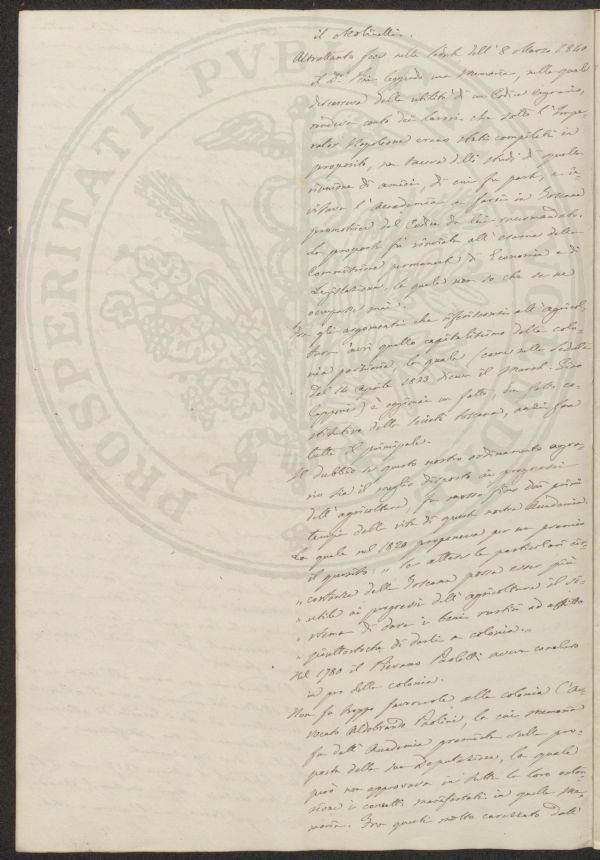 il Molinelli.
Altrettanto fece nella seduta dell' 8 Marzo 1840
il leggendo una Memoria, nella quale
discorreva della utilità di un Codice agrario,
rendeva conto dei lavori che sotto l'Impe-
ratore Napoleone erano stati compilati in
proposito, non taceva delli studi di quella
riunione di amici, di cui fa parte, e in-
vitava l'Accademia a farsi in Toscana
promotrice del Codice da lui raccomandato.
La proposta fu rinviata all'esame della
Commissione permanente di Economia e di
Legislazione, la quale non so che se ne
occupasse mai.
Fra gli argomenti che riferisconsi all'agricol-
tura avvi quello capitalissimo della colo-
nia parziaria, la quale (come nella seduta
del 14 Aprile 1833 diceva il March. Gino
Capponi) è oggimai un fatto, un fatto co-
stitutivo della società toscana, anzi fra
tutti il principale.
Il dubbio se questo nostro ordinamento agra-
rio sia il meglio disposto ai progressi
dell'agricoltura, fu mosso fino dai primi
tempi della vita di questa nostra Accademia.
La quale nel 1820 proponeva per un premio
il quesito: „ Se attese le particolari cir-
„ costanze della Toscana possa esser più
„ utile ai progressi dell'agricoltura il si-
„ stema di dare i beni rustici ad affitto
„ piuttostochè di darli a colonia. „
Nel 1780 il Pievano Paoletti aveva concluso
in pro della colonia.
Non fu troppo favorevole alla colonia l'Av-
vocato Aldobrando Paolini, la cui memoria
fu dall'Accademia premiata sulla pro-
posta della sua Deputazione, la quale
però non approvava in tutta la loro esten-
sione i concetti manifestati in quella Me-
moria. Fra questi molto dall'